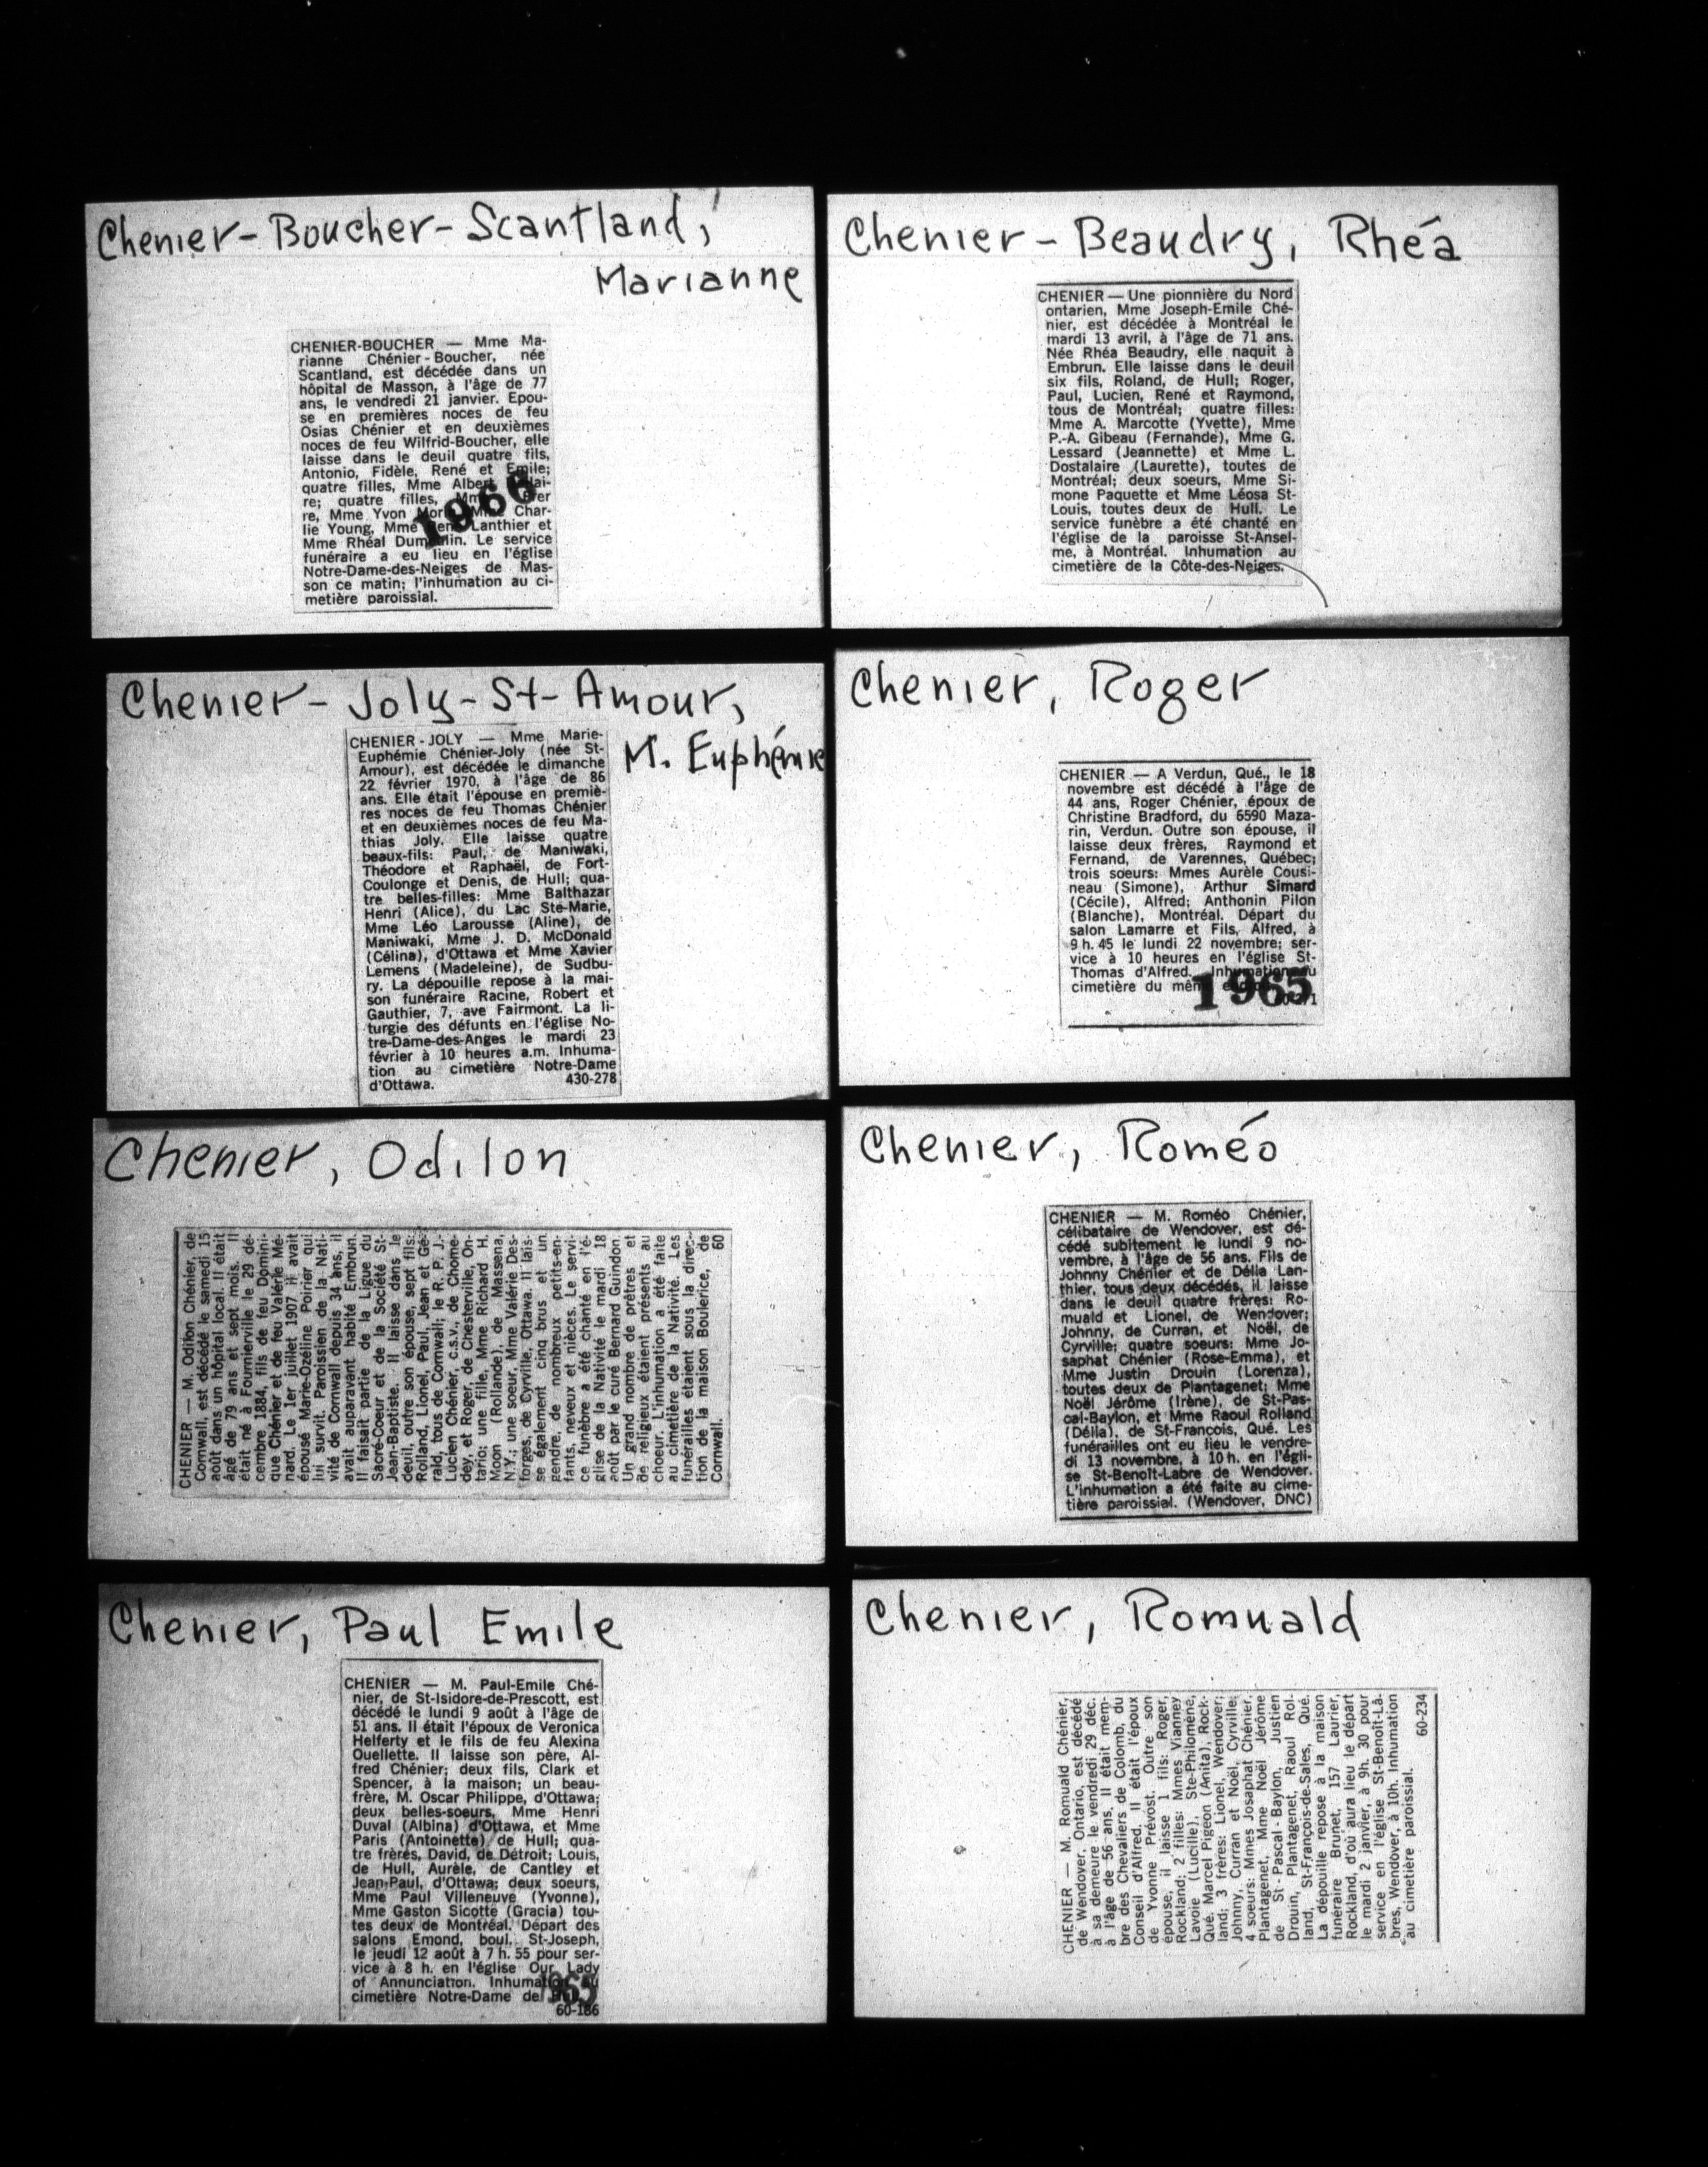 Chenier-Boucher-Scantland,
Marianne
CHENIER-BOUCHER — Mme Ma-
rianne Chénier-Boucher, née
Scantland, est décédée dans un
hôpital de Masson, à l'âge de 77
ans, le vendredi 21 janvier. Epou-
se en premières noces de feu
Osias Chénier et en deuxièmes
noces de feu Wilfrid-Boucher, elle
laisse dans le deuil quatre fils,
Antonio, Fidèle, René et Emile;
quatre filles, Mme Albert
re; quatre filles,
re, Mme Yvon Char-
lie Young, Mme Lanthier et
Mme Rhéal Le service
funéraire a eu lieu en l'église
Notre-Dame-des-Neiges de Mas-
son ce matin; l'inhumation au ci-
metière paroissial.
1966
Chenier-Beaudry, Rhéa
CHENIER — Une pionnière du Nord
ontarien, Mme Joseph-Emile Ché-
nier, est décédée à Montréal le
mardi 13 avril, à l'âge de 71 ans.
Née Rhéa Beaudry, elle naquit à
Embrun. Elle laisse dans le deuil
six fils, Roland, de Hull; Roger,
Paul, Lucien, René et Raymond,
tous de Montréal; quatre filles:
Mme A. Marcotte (Yvette), Mme
P.-A. Gibeau (Fernande), Mme G.
Lessard (Jeannette) et Mme L.
Dostalaire (Laurette), toutes de
Montréal; deux soeurs, Mme Si-
mone Paquette et Mme Léosa St-
Louis, toutes deux de Hull. Le
service funèbre a été chanté en
l'église de la paroisse St-Ansel-
me, à Montréal. Inhumation au
cimetière de la Côte-des-Neiges.
Chenier-Joly-St-Amour,
M. Euphémie
CHENIER-JOLY — Mme Marie-
Euphémie Chénier-Joly (née St-
Amour), est décédée le dimanche
22 février 1970, à l'âge de 86
ans. Elle était l'épouse en premiè-
res noces de feu Thomas Chénier
et en deuxièmes noces de feu Ma-
thias Joly. Elle laisse quatre
beaux-fils: Paul, de Maniwaki,
Théodore et Raphaël, de Fort-
Coulonge et Denis, de Hull; qua-
tre belles-filles: Mme Balthazar
Henri (Alice), du Lac Ste-Marie,
Mme Léo Larousse (Aline), de
Maniwaki, Mme J. D. McDonald
(Célina), d'Ottawa et Mme Xavier
Lemens (Madeleine), de Sudbu-
ry. La dépouille repose à la mai-
son funéraire Racine, Robert et
Gauthier, 7, ave Fairmont. La li-
turgie des défunts en l'église No-
tre-Dame-des-Anges le mardi 23
février à 10 heures a.m. Inhuma-
tion au cimetière Notre-Dame
d'Ottawa. 430-278
Chenier, Roger
CHENIER — A Verdun, Qué., le 18
novembre est décédé à l'âge de
44 ans, Roger Chénier, époux de
Christine Bradford, du 6590 Maza-
rin, Verdun. Outre son épouse, il
laisse deux frères, Raymond et
Fernand, de Varennes, Québec;
trois soeurs: Mmes Aurèle Cousi-
neau (Simone), Arthur Simard
(Cécile), Alfred; Anthonin Pilon
(Blanche), Montréal. Départ du
salon Lamarre et Fils, Alfred, à
9 h. 45 le lundi 22 novembre; ser-
vice à 10 heures en l'église St-
Thomas d'Alfred. Inhumation au
cimetière du même
1965
Chenier, Odilon
CHENIER — M. Odilon Chénier, de
Cornwall, est décédé le samedi 15
août dans un hôpital local. Il était
âgé de 79 ans et sept mois. Il
était né à Fournierville le 29 dé-
cembre 1884, fils de feu Domini-
que Chénier et de feu Valérie Mé-
nard. Le 1er juillet 1907 il avait
épousé Marie-Ozéline Poirier qui
lui survit. Paroissien de la Nati-
vité de Cornwall depuis 34 ans, il
avait auparavant habité Embrun.
Il faisait partie de la Ligue du
Sacré-Coeur et de la Société St-
Jean-Baptiste. Il laisse dans le
deuil, outre son épouse, sept fils:
Rolland, Lionel, Paul, Jean et Gé-
rald, tous de Cornwall; le R. P. J.-
Lucien Chénier, c.s.v., de Chome-
dey, et Roger, de Chesterville, On-
tario; une fille, Mme Richard H.
Moon (Rollande), de Massena,
N.Y.; une soeur, Mme Valérie Des-
forges, de Cyrville, Ottawa. Il lais-
se également cinq brus et un
gendre, de nombreux petits-en-
fants, neveux et nièces. Le servi-
ce funèbre a été chanté en l'é-
glise de la Nativité le mardi 18
août par le curé Bernard Guindon.
Un grand nombre de prêtres et
de religieux étaient présents au
choeur. L'inhumation a été faite
au cimetière de la Nativité. Les
funérailles étaient sous la direc-
tion de la maison Boulerice, de
Cornwall. 60
Chenier, Roméo
CHENIER — M. Roméo Chénier,
célibataire de Wendover, est dé-
cédé subitement le lundi 9 no-
vembre, à l'âge de 56 ans. Fils de
Johnny Chénier et de Délia Lan-
thier, tous deux décédés, il laisse
dans le deuil quatre frères: Ro-
muald et Lionel, de Wendover;
Johnny, de Curran, et Noël, de
Cyrville; quatre soeurs: Mme Jo-
saphat Chénier (Rose-Emma), et
Mme Justin Drouin (Lorenza),
toutes deux de Plantagenet; Mme
Noël Jérôme (Irène), de St-Pas-
cal-Baylon, et Mme Raoul Rolland
(Délia), de St-François, Qué. Les
funérailles ont eu lieu le vendre-
di 13 novembre, à 10 h. en l'égli-
se St-Benoît-Labre de Wendover.
L'inhumation a été faite au cime-
tière paroissial. (Wendover, DNC)
Chenier, Paul Emile
CHENIER — M. Paul-Emile Ché-
nier, de St-Isidore-de-Prescott, est
décédé le lundi 9 août à l'âge de
51 ans. Il était l'époux de Veronica
Helferty et le fils de feu Alexina
Ouellette. Il laisse son père, Al-
fred Chénier; deux fils, Clark et
Spencer, à la maison; un beau-
frère, M. Oscar Philippe, d'Ottawa;
deux belles-soeurs, Mme Henri
Duval (Albina) d'Ottawa, et Mme
Paris (Antoinette) de Hull; qua-
tre frères, David, de Détroit; Louis,
de Hull, Aurèle, de Cantley et
Jean-Paul, d'Ottawa; deux soeurs,
Mme Paul Villeneuve (Yvonne),
Mme Gaston Sicotte (Gracia) tou-
tes deux de Montréal. Départ des
salons Emond, boul. St-Joseph,
le jeudi 12 août à 7 h. 55 pour ser-
vice à 8 h. en l'église Our Lady
of Annunciation. Inhumation au
cimetière Notre-Dame de
1965
60-186
Chenier, Romuald
CHENIER — M. Romuald Chénier,
de Wendover, Ontario, est décédé
à sa demeure le vendredi 29 déc.
à l'âge de 56 ans. Il était mem-
bre des Chevaliers de Colomb, du
Conseil d'Alfred. Il était l'époux
de Yvonne Prévost. Outre son
épouse, il laisse 1 fils: Roger,
Rockland; 2 filles: Mmes Vianney
Lavoie (Lucille), Ste-Philomène,
Qué. Marcel Pigeon (Anita), Rock-
land; 3 frères: Lionel, Wendover;
Johnny, Curran et Noël, Cyrville;
4 soeurs: Mmes Josaphat Chénier,
Plantagenet, Mme Noël Jérôme
de St-Pascal-Baylon, Justien
Drouin, Plantagenet, Raoul Rol-
land, St-François-de-Sales, Qué.
La dépouille repose à la maison
funéraire Brunet, 157 Laurier,
Rockland, d'où aura lieu le départ
le mardi 2 janvier, à 9h. 30 pour
service en l'église St-Benoît-La-
bres, Wendover, à 10h. Inhumation
au cimetière paroissial.
60-234